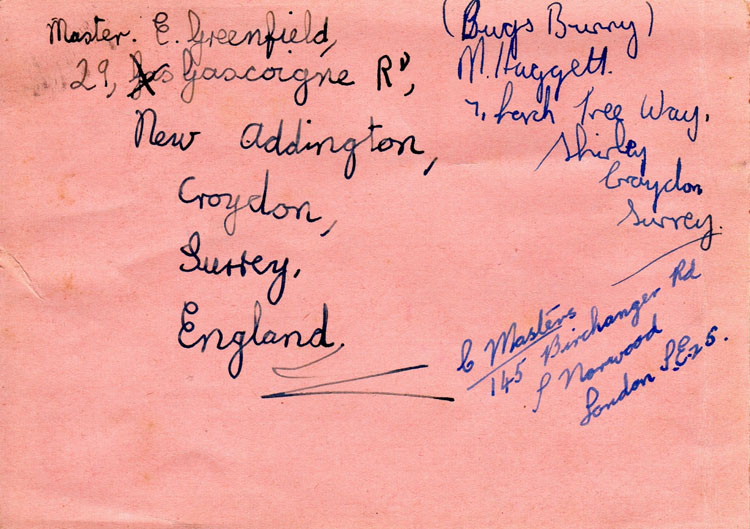 Master. E. Greenfield,
29, Gascoigne Rd,
New Addington,
Croydon,
Surrey,
England.
(Bugs Bunny)
M. Haggett.
7, Larch Tree Way,
Shirley
Croydon
Surrey.
C Masters
145 Birchanger Rd
S Norwood
London S.E.25.